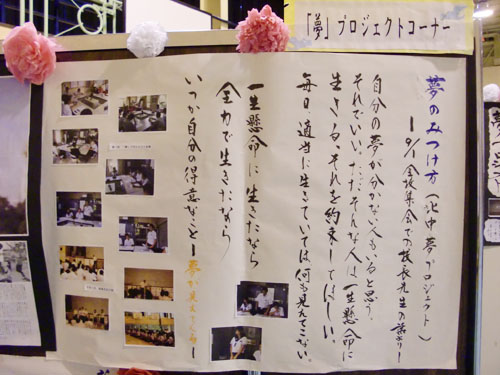 「夢」プロジェクトコーナー
夢のみつけ方（北中夢プロジェクト）
ー9/1全校集会での校長先生の話よりー
自分の夢が分からない人もいると思う。
それでいい。ただそんな人は一生懸命に
生きる、それを約束してほしい。
毎日適当に生きていては何も見えてこない。
一生懸命に生きたなら
全力で生きたなら
いつか自分の得意なことー夢が見えてくるー